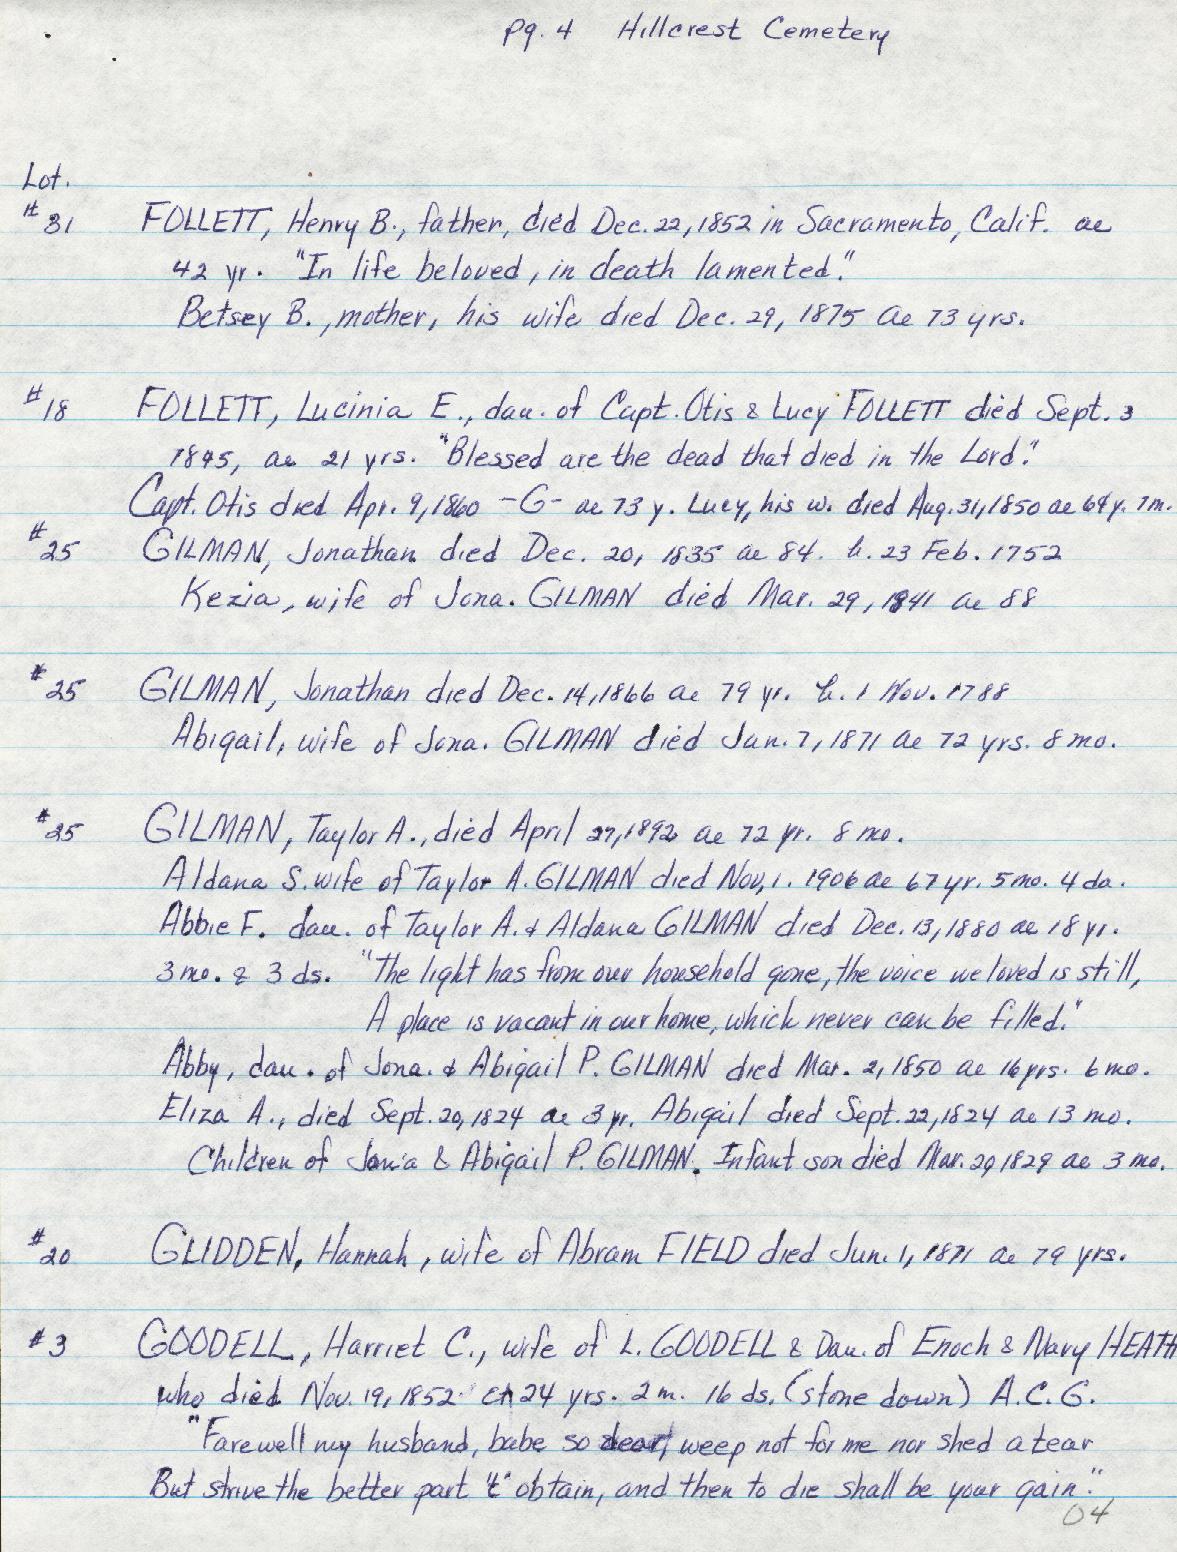 pg. 4 Hillcrest Cemetery
Lot.
# 31 FOLLETT, Henry B., father, died Dec. 22, 1852 in Sacramento, Calif. ae
42 yr. "In life beloved, in death lamented."
Betsey B., mother, his wife died Dec. 29, 1875 ae 73 yrs.
# 18 FOLLETT, Lucinia E., dau. of Capt. Otis & Lucy FOLLETT died Sept. 3
1845, ae 21 yrs. "Blessed are the dead that died in the Lord."
Capt. Otis died Apr. 9, 1860 -G- ae 73 y. Lucy, his w. died Aug. 31, 1850 ae 64 y. 7m.
# 25 GILMAN, Jonathan died Dec. 20, 1835 ae 84. b. 23 Feb. 1752
Kezia, wife of Jona. GILMAN died Mar. 29, 1841 ae 88
# 25 GILMAN, Jonathan died Dec. 14, 1866 ae 79 yr. b. 1 Nov. 1788
Abigail, wife of Jona. GILMAN died Jan. 7, 1871 ae 72 yrs. 8 mo.
# 25 GILMAN, Taylor A., died April 27, 1892 ae 72 yr. 8 mo.
Aldana S. wife of Taylor A. GILMAN died Nov, 1. 1906 ae 67 yr. 5 mo. 4 da.
Abbie F. dau. of Taylor A. & Aldana GILMAN died Dec. 13, 1880 ae 18 yr.
3 mo. & 3 ds. "The light has from our household gone, the voice we loved is still,
A place is vacant in our home, which never can be filled."
Abby, dau. of Jona. & Abigail P. GILMAN died Mar. 2, 1850 ae 16 yrs. 6 mo.
Eliza A., died Sept. 20, 1824 ae 3 yr. Abigail died Sept. 22, 1824 ae 13 mo.
Children of Jona & Abigail P. GILMAN. Infant son died Mar. 29 1829 ae 3 mo.
# 20 GLIDDEN, Hannah, wife of Abram FIELD died Jun. 1, 1871 ae 79 yrs.
# 3 GOODELL, Harriet C., wife of L. GOODELL & Dau. of Enoch & Mary HEATH
who died Nov. 19, 1852 24 yrs. 2 m. 16 ds. (stone down) A.C.G.
"Farewell my husband, babe so dear, weep not for me nor shed a tear
But strive the better part 't' obtain, and then to die shall be your gain."
04